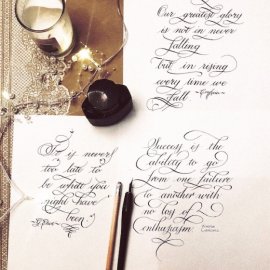 Our greatest glory
is not in never
falling
but in rising
every time we
fall
~ Confucius
It is never
too late to
be what you
might have
been
G. Eliot
Success is the
ability to go
from one failure
to another with
no loss of
enthusiasm
Winston
Churchill